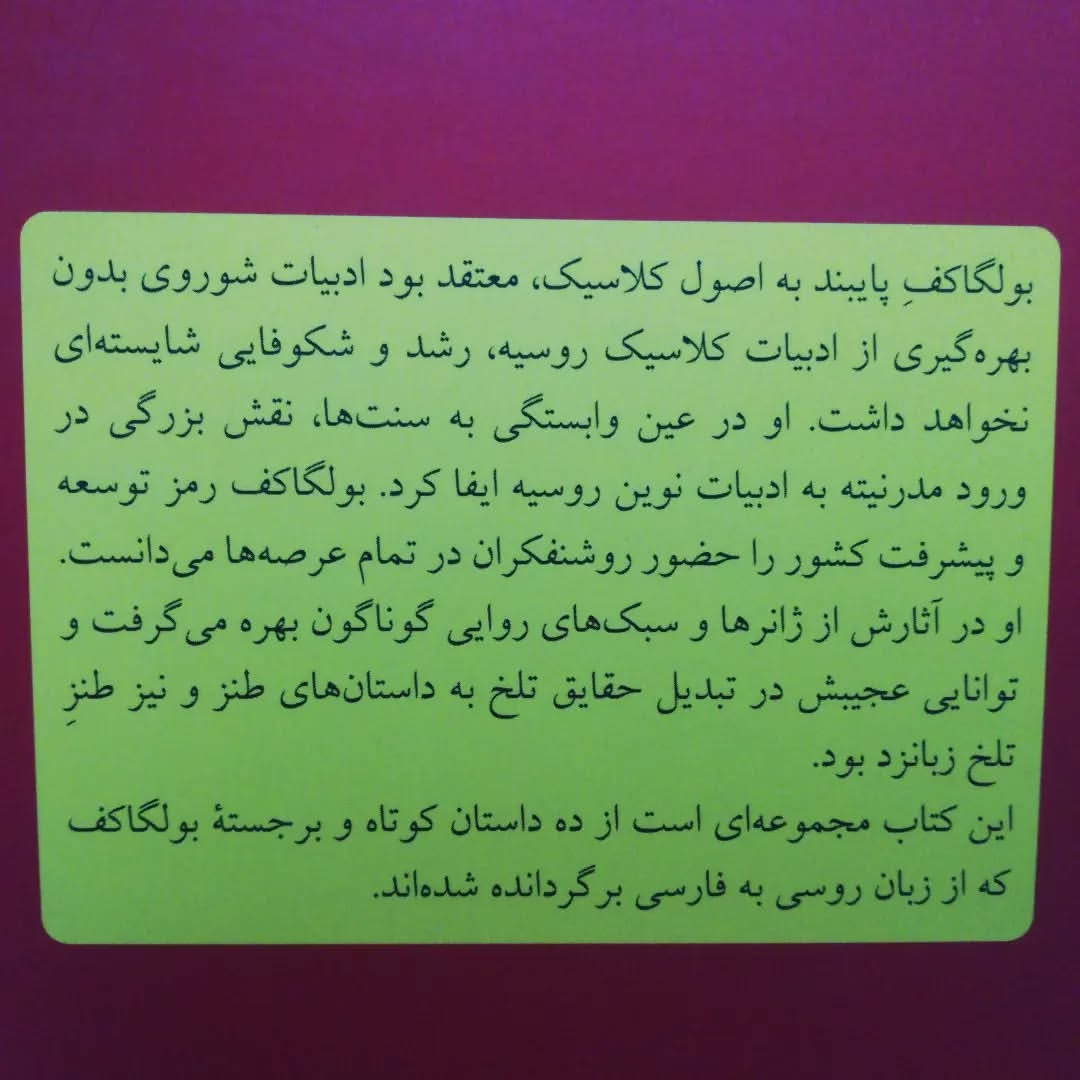 بولگاکفِ پایبند به اصول کلاسیک، معتقد بود ادبیات شوروی بدون
بهره‌گیری از ادبیات کلاسیک روسیه، رشد و شکوفایی شایسته‌ای
نخواهد داشت. او در عین وابستگی به سنت‌ها، نقش بزرگی در
ورود مدرنیته به ادبیات نوین روسیه ایفا کرد. بولگاکف رمز توسعه
و پیشرفت کشور را حضور روشنفکران در تمام عرصه‌ها می‌دانست.
او در آثارش از ژانرها و سبک‌های روایی گوناگون بهره می‌گرفت و
توانایی عجیبش در تبدیل حقایق تلخ به داستان‌های طنز و نیز طنزِ
تلخ زبانزد بود.
این کتاب مجموعه‌ای است از ده داستان کوتاه و برجستهٔ بولگاکف
که از زبان روسی به فارسی برگردانده شده‌اند.